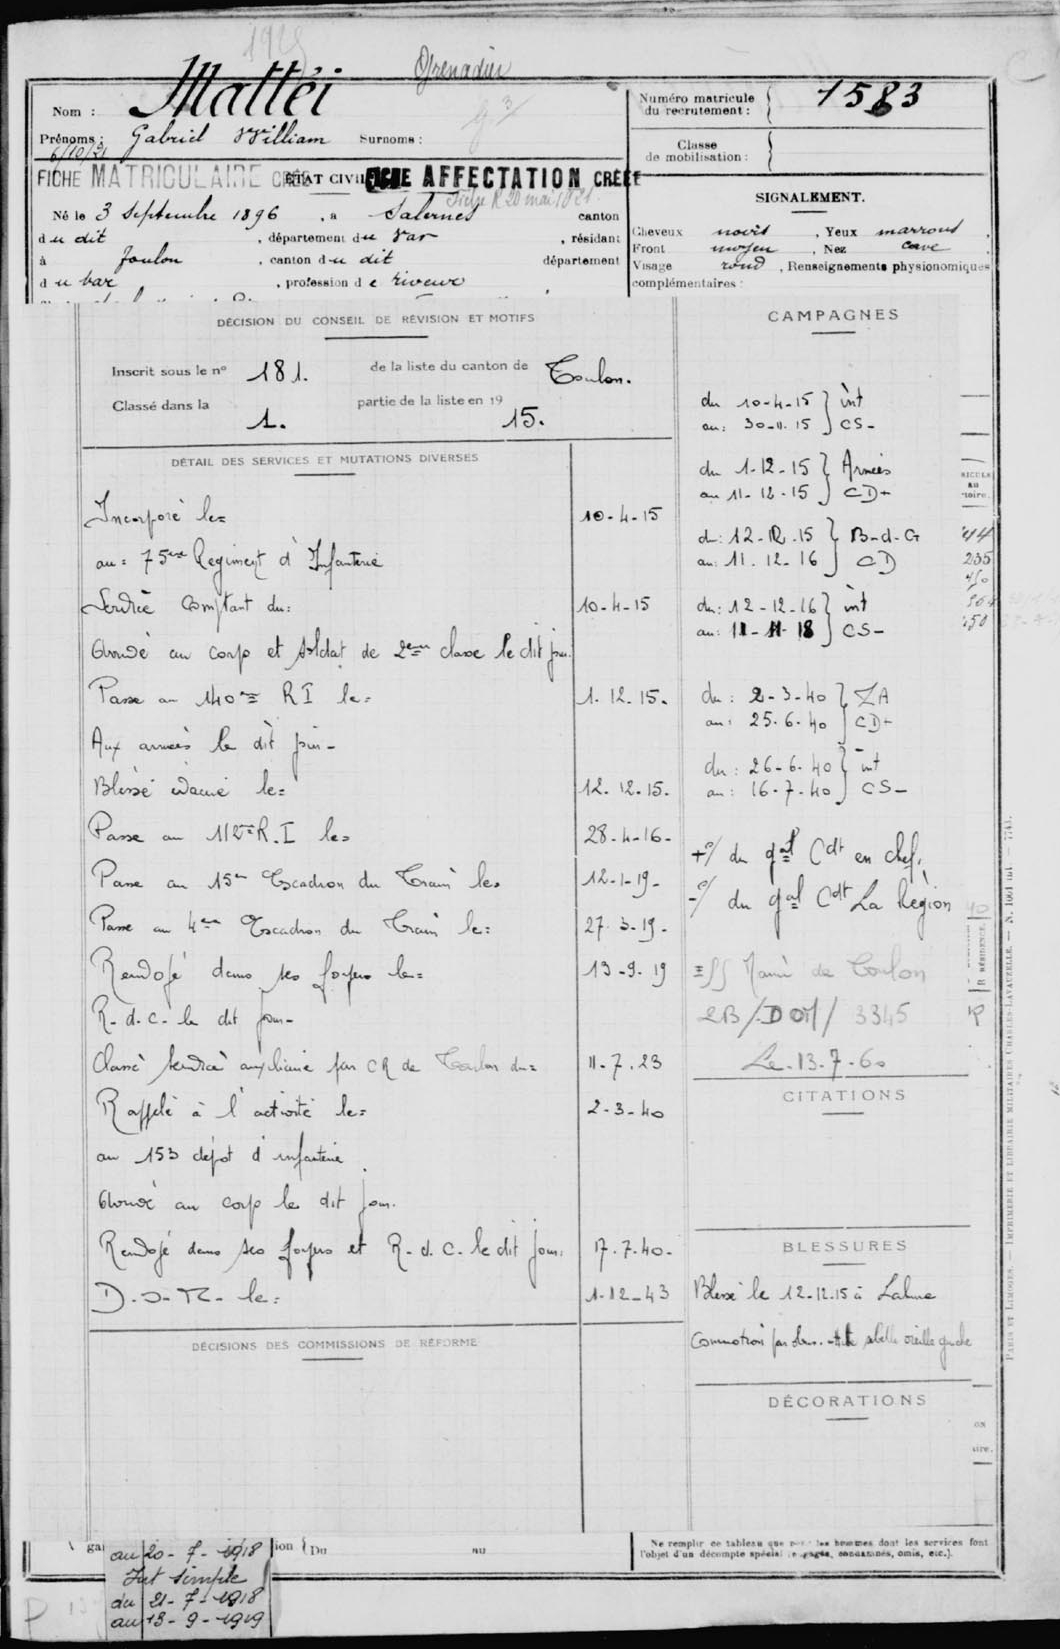 1925
Grenadier
Nom : Mattéi
Prénoms : Gabriel William Surnoms :
6/10/21
FICHE MATRICULAIRE CRÉÉE
ÉTAT CIVIL
FICHE AFFECTATION CRÉÉE
Né le 3 Septembre 1896, à Salernes canton
du dit, département du Var, résidant
à Toulon, canton du dit département
du var, profession de riveur
Numéro matricule du recrutement : 1583
Classe de mobilisation :
SIGNALEMENT.
Cheveux noirs, Yeux marrons,
Front moyen, Nez cave
Visage rond, Renseignements physionomiques
complémentaires :
DÉCISION DU CONSEIL DE RÉVISION ET MOTIFS
Inscrit sous le n° 181. de la liste du canton de Toulon.
Classé dans la 1. partie de la liste en 1915.
DÉTAIL DES SERVICES ET MUTATIONS DIVERSES
Incorporé le= 10-4-15
au= 75eme Regiment d'Infanterie
Service comptant du: 10-4-15
Arrivé au corps et soldat de 2eme classe le dit jour.
Passé au 140me RI le= 1.12.15.
Aux armées le dit jour-
Blessé évacué le= 12.12.15.
Passé au 112me R.I le= 28-4-16-
Passé au 15me Escadron du Train le= 12-1-19-
Passé au 4me Escadron du Train le: 27.3-19-
Renvoyé dans ses foyers le= 13-9-19
R-d.c-le dit jour-
Classé service auxiliaire par CR de Toulon du= 11-7.23
Rappelé à l'activité le= 2-3-40
au 153 dépot d'infanterie
Arrivé au corps le dit jour.
Renvoyé dans ses foyers et R-d.C-le dit jour. 17.7.40-
le: 1-12-43
DÉCISIONS DES COMMISSIONS DE RÉFORME
CAMPAGNES
du 10-4-15 } int
au: 30-11.15 } CS-
du 1-12-15 } Armées
au 11-12-15 } CD+
du: 12-12-15 } B-d-G
au: 11.12-16 } CD
du: 12-12-16 } int
au: 11-11-18 } CS-
du: 2-3-40 } ZA
au: 25.6.40 } CD+
du: 26-6-40 } int
au: 16-7-40 } CS-
+°/ du gal Cdt en chef,
-°/ du gal Cdt La Région
Mairie de Toulon
3345
Le-13-7-60
CITATIONS
BLESSURES
Blessé le 12-12.15 à
Commotion par obus. oreille gauche
DÉCORATIONS
Du au
au 20-7-1918
Int simple
du 21-7-1918
au 13-9-1919
Ne remplir ce tableau que pour les hommes dont les services font
l'objet d'un décompte spécial (engagés, condamnés, omis, etc.).
PARIS ET LIMOGES. — IMPRIMERIE ET LIBRAIRIE MILITAIRES CHARLES-LAVAUZELLE.